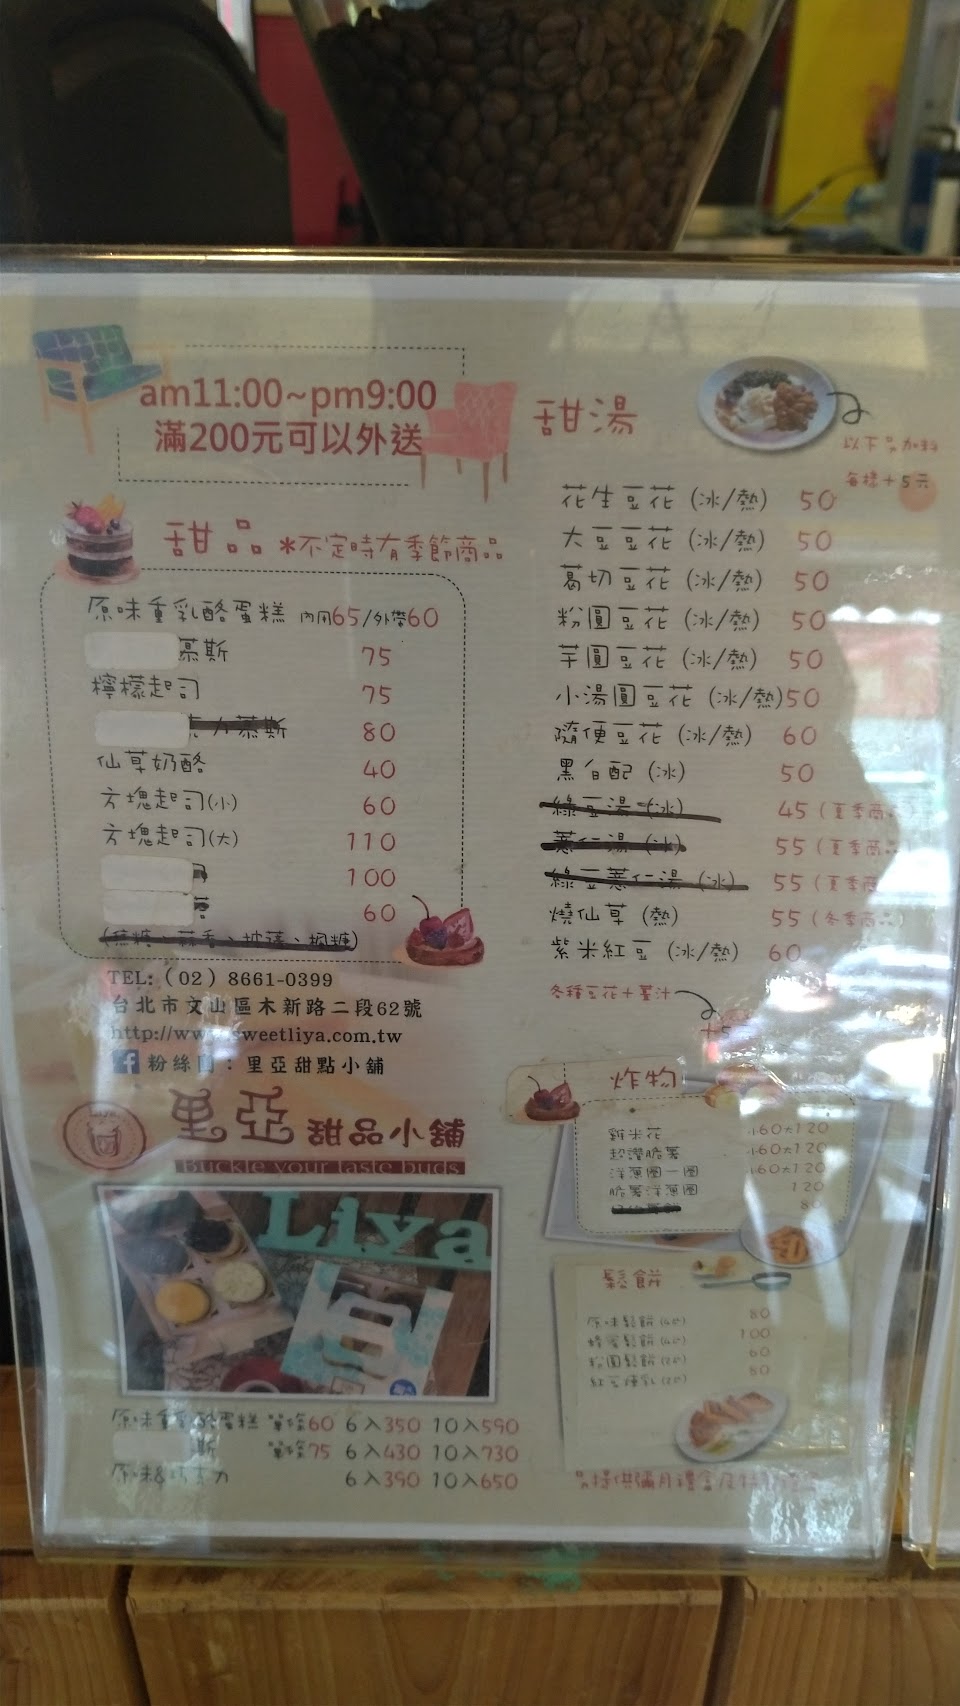 am11:00~pm9:00
滿200元可以外送
甜品 *不定時有季節商品
原味重乳酪蛋糕 內用65/外帶60
慕斯 75
檸檬起司 75
慕斯 80
仙草奶酪 40
方塊起司(小) 60
方塊起司(大) 110
100
60
TEL:（02）8661-0399
台北市文山區木新路二段62號
http://www.sweetliya.com.tw
粉絲團：里亞甜點小舖
里亞 甜品小舖
Buckle your taste buds
Liya
原味重乳酪蛋糕 單條60 6入350 10入590
斯 單條75 6入430 10入730
原味&巧克力 6入390 10入650
甜湯
以下品加料
每樣+5元
花生豆花 (冰/熱) 50
大豆豆花 (冰/熱) 50
葛切豆花 (冰/熱) 50
粉圓豆花 (冰/熱) 50
芋圓豆花 (冰/熱) 50
小湯圓豆花 (冰/熱) 50
隨便豆花 (冰/熱) 60
黑白配 (冰) 50
綠豆湯 (冰) 45 (夏季商品)
薏仁湯 (冰) 55 (夏季商品)
綠豆薏仁湯 (冰) 55 (夏季
燒仙草 (熱) 55 (冬季商品)
紫米紅豆 (冰/熱) 60
各種豆花+薑汁
+5
炸物
雞米花 小60大120
超讚脆薯 小60大120
洋蔥圈一圈 小60大120
脆薯洋蔥圈 120
80
鬆餅
原味鬆餅(4P) 80
蜂蜜鬆餅(4P) 100
粉圓鬆餅(2P) 60
紅豆煉乳(2P) 80
提供彌月禮盒及